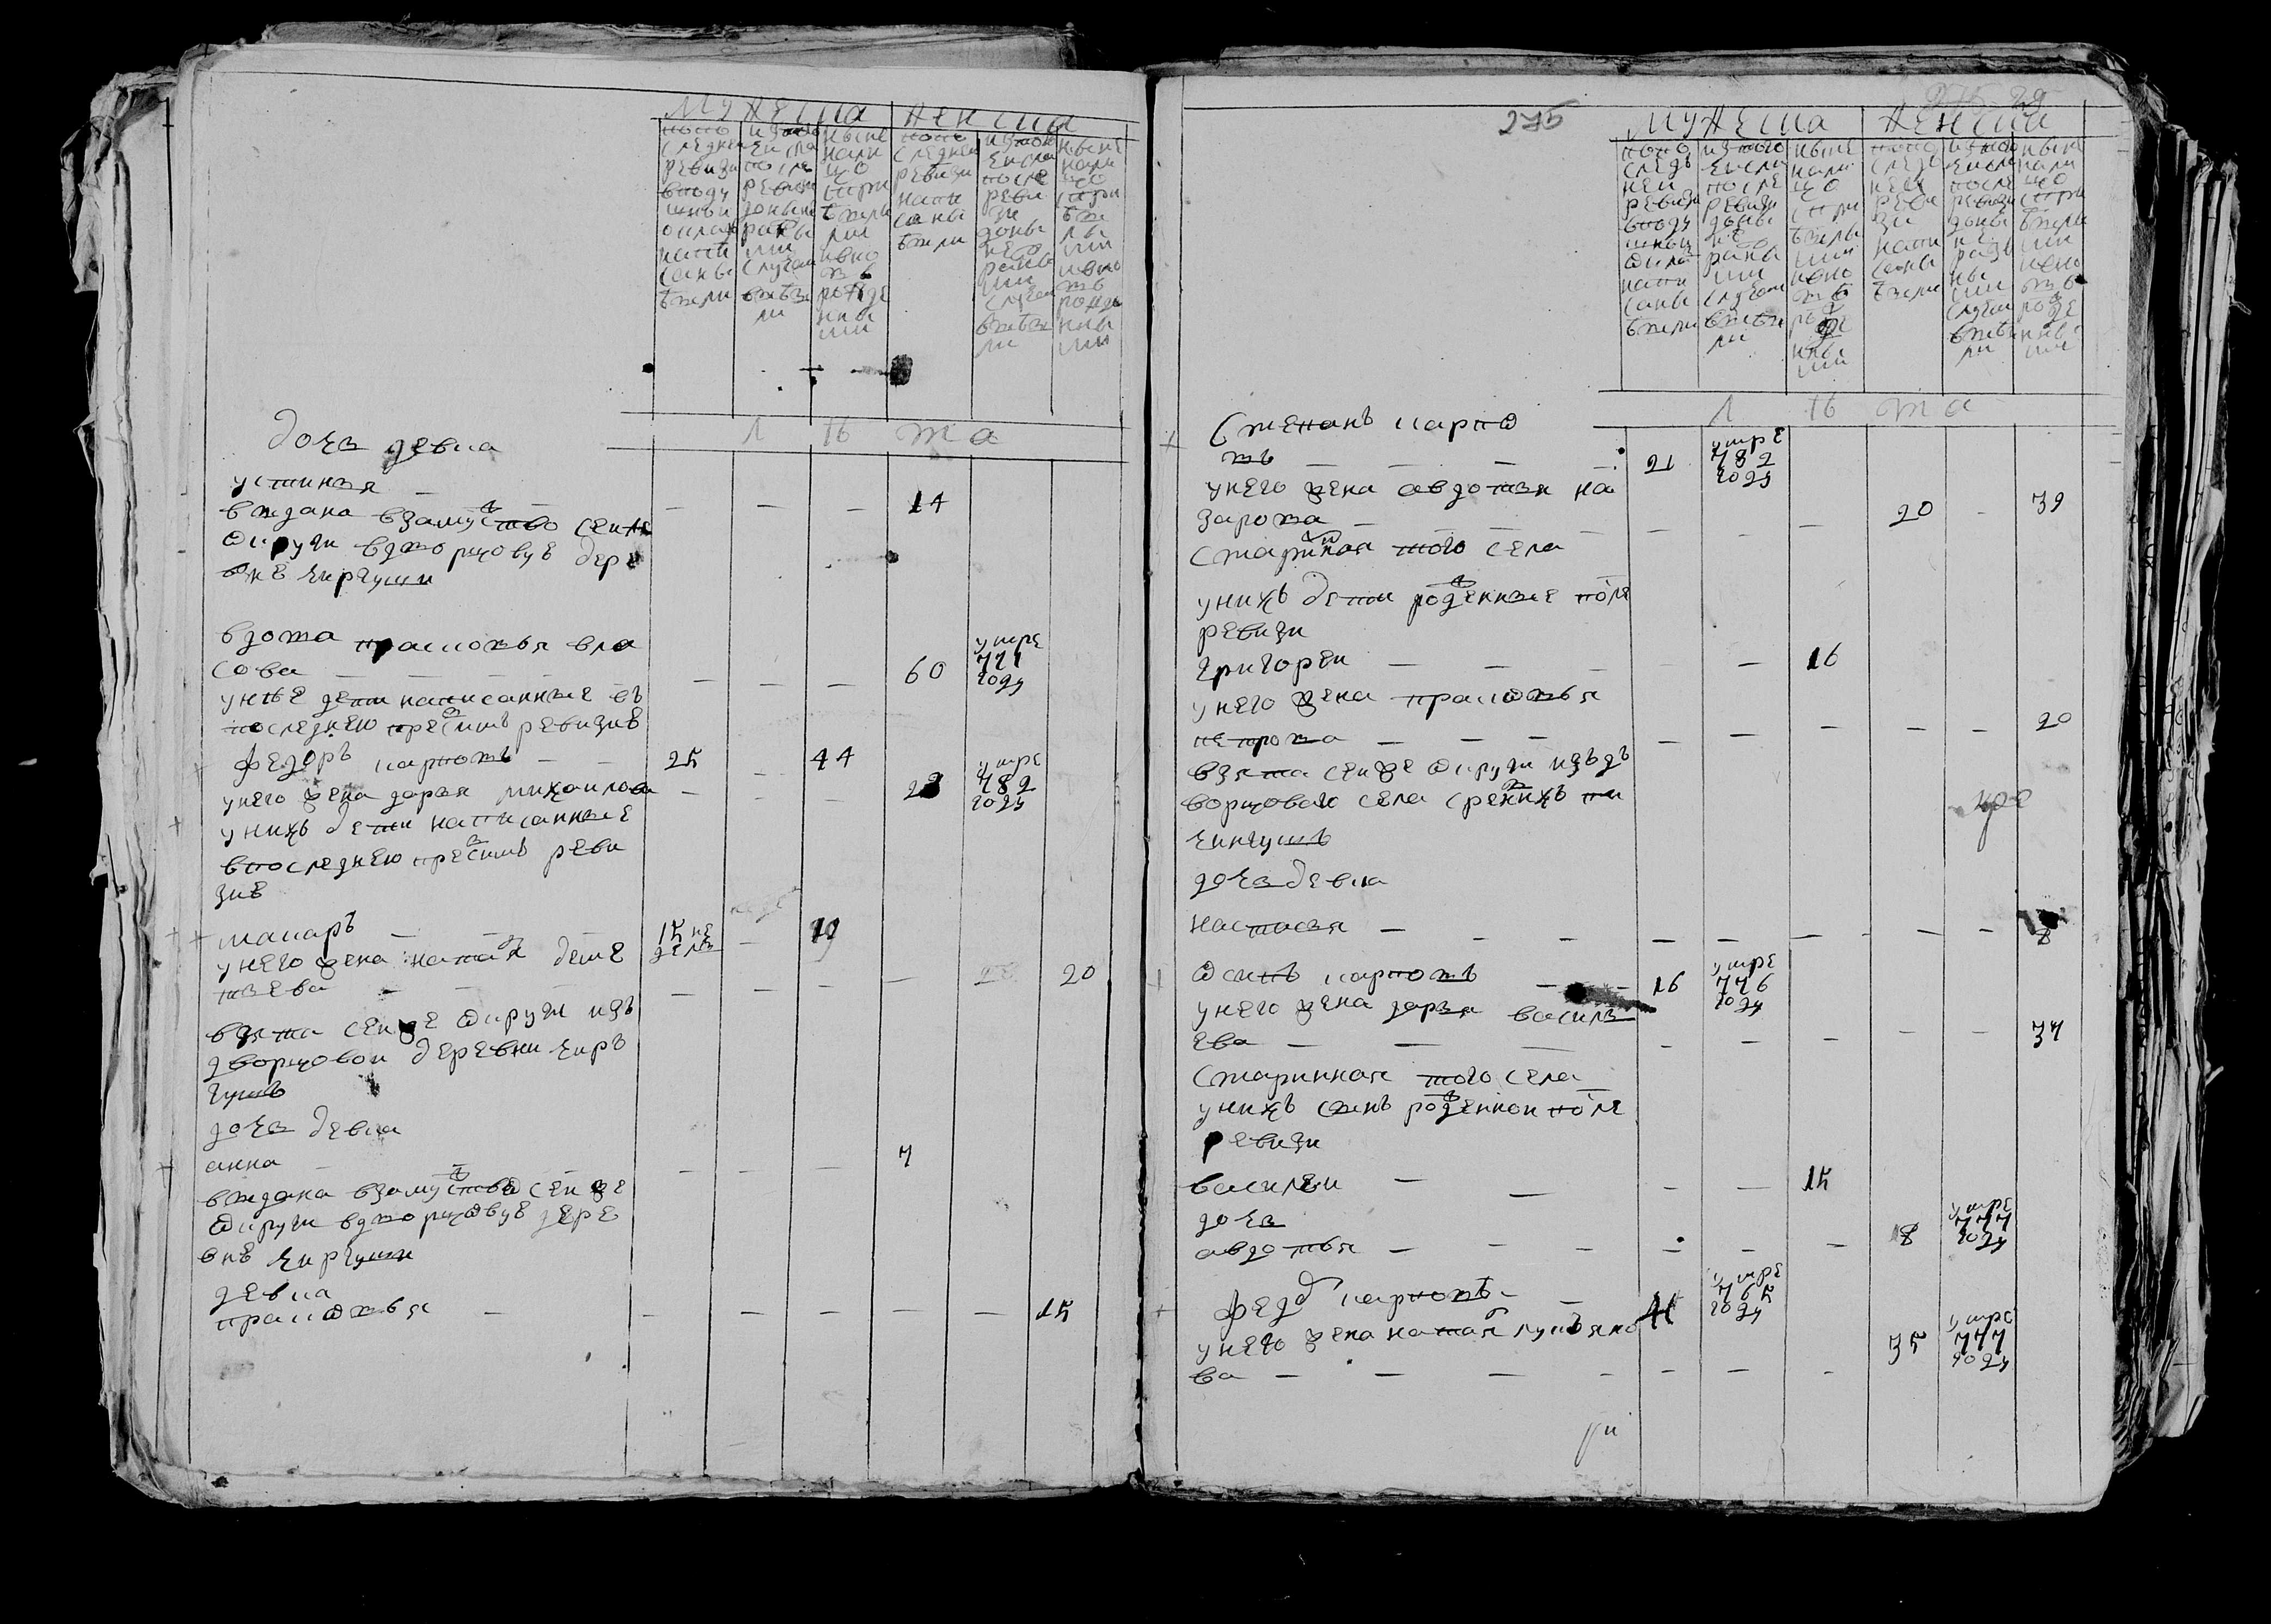 мужеска женска
попо следнеи ревизи вподу шнои окладъ написаны были
изтого числа после ревизи доныне разными случаи выбыли
ныне налицо спри былыми ивновь рожденными
попо следнеи ревизи написаны были
изтого числа после ревизи доныне разными случаи выбыли
ныне налицо спри былыми ивновь рожденными
лѣта
дочь девка
устинья — — — — 14
выдана взамуство сенже
округи вдворцовуе дере
внѣ киргуши
вдова прасковья вла
сова — — — — — — 60 умре 771 году
унѣе дети написанные въ
последнею пресимъ ревизиѣ
федоръ карповъ — — 25 — 44
унего жена дарья михаилова — — — 23 умре 782 году
унихъ дети написанные
впоследнею пресимъ реви
зиѣ
макаръ — — — 15 не дель — 19
унего жена наталя деме
тьева — — — — — — — 20
взята сенже округи изъ
дворцовои деревни кир
гушъ
дочь девка
анна — — — — — 7
выдана взамуство сенже
округи вдворцовуе дере
внѣ киргуши
девка
прасковья — — — — — — 15
275
мужеска женска
попо следь неи ревизи вподу шнои окла написаны были
изтого числа после ревизи доны не разны ми случаи выбыли
ныне налицо спри былыми ивновь рожденными
попо следь неи ревизи написаны были
изтого числа после ревизи доны не разны ми случаи выбыли
ныне налицо спри былыми ивновь рожденными
лѣта
степанъ карпо
въ — — — — 21 умре 782 году
унего жена авдотья на
зарова — — — — — — 20 — 39
стариная того села
унихъ дети роженные после
ревизи
григореи — — — — 16
унего жена прасковья
петрова — — — — — — — — 20
взята сенже округи изъдъ
ворцоваго села среднихъ ти
кингушъ
дочь девка
настасья — — — — — — — — 8
осипъ карповъ — — 16 умре 776 году
унего жена дарья василь
ева — — — — — — — — 34
старинная того села
унихъ сынъ роженнои после
ревизи
василеи — — — — 15
дочь
авдотья — — — — — — 8 умре 777 году
федо карповъ — — 41 умре 765 году
унего жена наталя лукьяно
ва — — — — — — — 35 умре 777 году